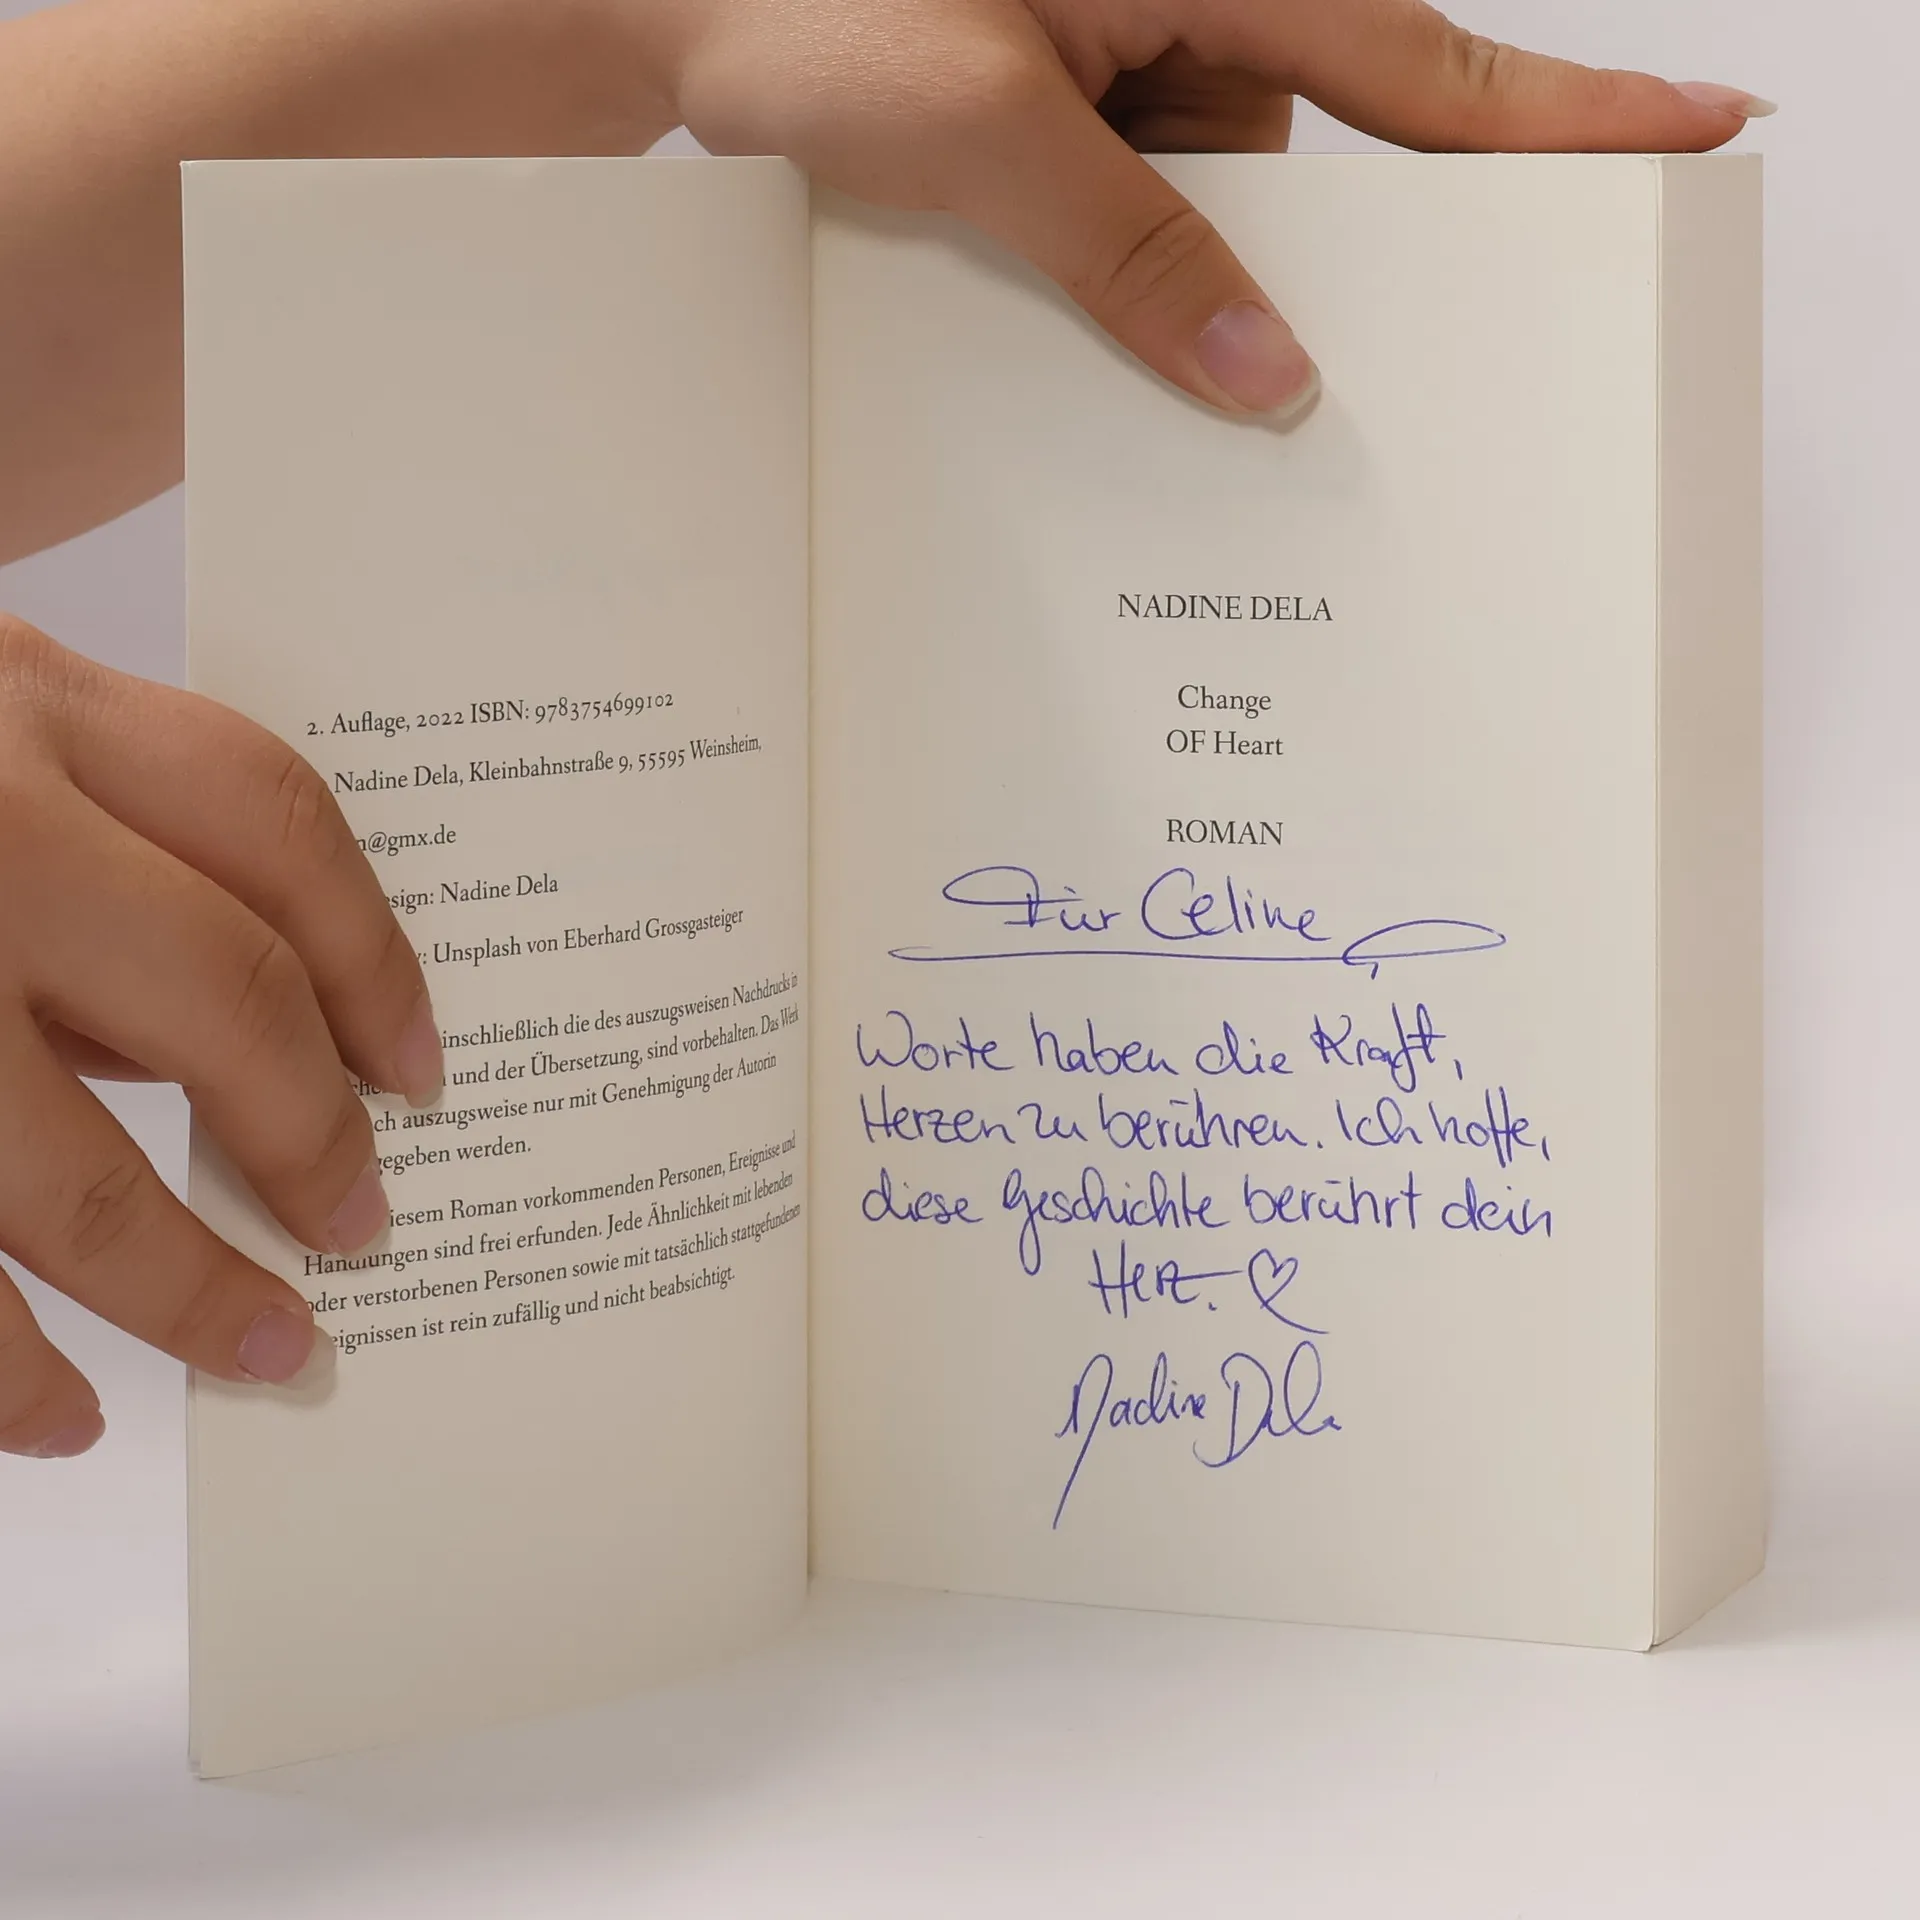 2. Auflage, 2022 ISBN: 9783754699102
Nadine Dela, Kleinbahnstraße 9, 55595 Weinsheim,
n@gmx.de
esign: Nadine Dela
: Unsplash von Eberhard Grossgasteiger
inschließlich die des auszugsweisen Nachdrucks in
und der Übersetzung, sind vorbehalten. Das Werk
ch auszugsweise nur mit Genehmigung der Autorin
gegeben werden.
iesem Roman vorkommenden Personen, Ereignisse und
Handlungen sind frei erfunden. Jede Ähnlichkeit mit lebenden
oder verstorbenen Personen sowie mit tatsächlich stattgefundenen
eignissen ist rein zufällig und nicht beabsichtigt.
NADINE DELA
Change
OF Heart
ROMAN
Für Celine
Worte haben die Kraft,
Herzen zu berühren. Ich hoffe,
diese Geschichte berührt dein
Herz. ♡
Nadine Dela